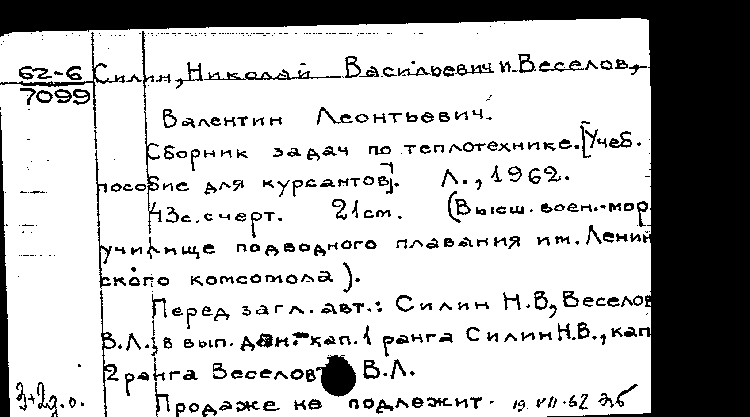 62-6 Силин, Николай Васильевич и Веселов,
7099
Валентин Леонтьевич.
Сборник задач по теплотехнике. [Учеб.
пособие для курсантов]. Л., 1962.
43с. с черт. 21см. (Высш. воен.-мор.
училище подводного плавания им. Ленин
ского комсомола).
Перед загл. авт.: Силин Н.В., Веселов
В.Л.; в вып. дан.- кап. 1 ранга Силин Н.В., кап.
2 ранга Веселов В.Л.
3+2д.о. Продаже не подлежит. 19.VII.62